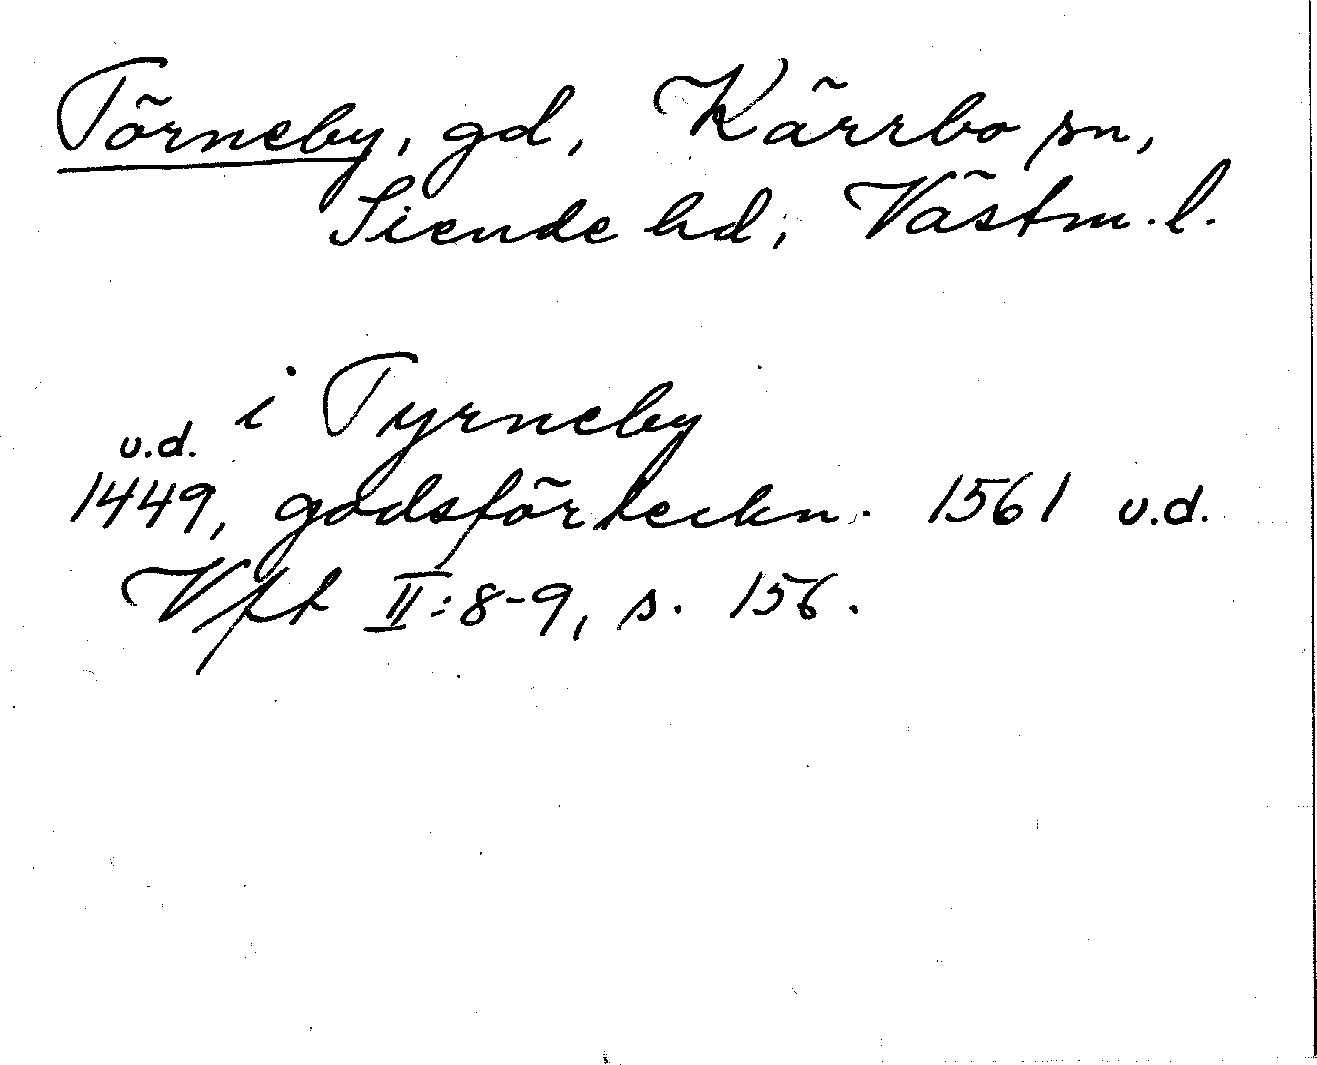 Törneby, gd, Kärrbo sn,
Siende hd, Västm. l.
i Tyrneby
u.d.
1449, godsförteckn. 1561 u.d.
Vft II:8-9, s. 156.